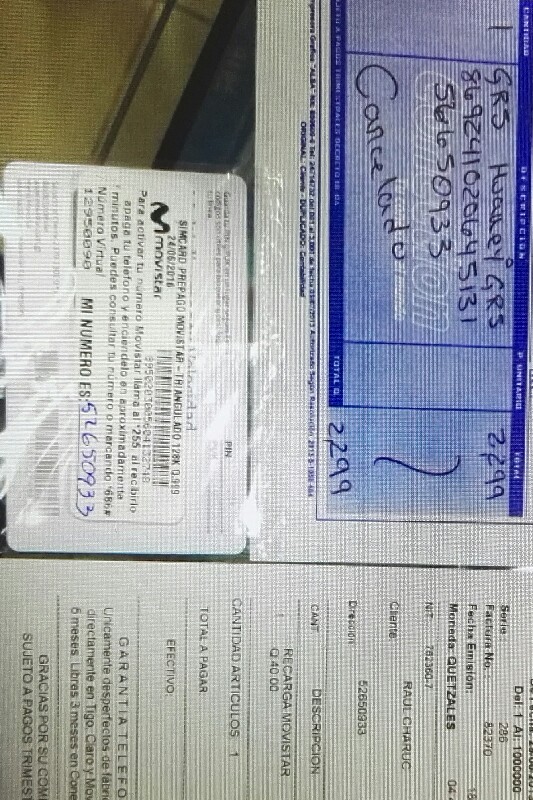 CANTIDAD DESCRIPCION P. UNITARIO TOTAL
1 GR5 Huawei GR5 2,299
869241020645131
52650933
Cancelado
TOTAL Q. 2,299
ORIGINAL: Cliente - DUPLICADO: Contabilidad
PIN
SIMCARD PREPAGO MOVISTAR - TRIANGULADO 128K 0.999
24/06/2016
movistar
Para activar tu número Movistar llama al *255, al recibirlo
apaga tu teléfono y enciendelo en aproximadamente
minutos. Puedes consultar tu número o marcando *686#
Número Virtual
12950090 MI NUMERO ES: 52650933
Del: 1 Al: 1000000
Serie 286
Factura No.: 82370
Fecha Emision:
Moneda: QUETZALES
NIT: 762360-7
Cliente RAUL CHARUC
Direccion 52650933
CANT DESCRIPCION
1 RECARGA MOVISTAR
Q 40.00
CANTIDAD ARTICULOS 1
TOTAL A PAGAR
EFECTIVO:
GARANTIA TELEFO
Unicamente desperfectos de fábri
directamente en Tigo, Claro y Mov
6 meses. Libres 3 meses en Cone
GRACIAS POR SU COM
SUJETO A PAGOS TRIMEST